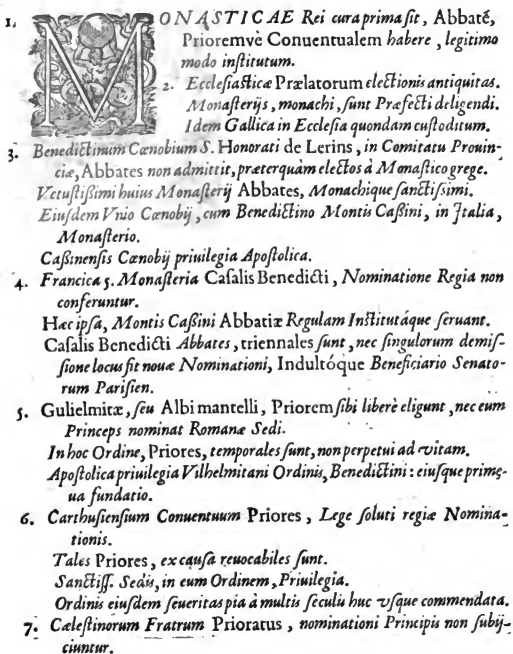 1. MONASTICAE Rei cura prima ſit, Abbatẽ,
Prioremvè Conuentualem habere, legitimo
modo inſtitutum.
2. Eccleſiaſticæ Prælatorum electionis antiquitas.
Monaſterijs, monachi, ſunt Præfecti deligendi.
Idem Gallica in Eccleſia quondam cuſtoditum.
3. Benedictinum Cœnobium S. Honorati de Lerins, in Comitatu Prouin-
ciæ, Abbates non admittit, præterquàm electos à Monaſtico grege.
Vetuſtißimi huius Monaſterij Abbates, Monachique ſanctiſsimi.
Eiuſdem Vnio Cœnobij, cum Benedictino Montis Caßini, in Italia,
Monaſterio.
Caßinenſis Cœnobij priuilegia Apoſtolica.
4. Francica 5. Monaſteria Caſalis Benedicti, Nominatione Regia non
conferuntur.
Hæc ipſa, Montis Caßini Abbatiæ Regulam Inſtitutáque ſeruant.
Caſalis Benedicti Abbates, triennales ſunt, nec ſingulorum demiſ-
ſione locus fit nouæ Nominationi, Indultóque Beneficiario Senato-
rum Pariſien.
5. Gulielmitæ, ſeu Albi mantelli, Priorem ſibi liberè eligunt, nec eum
Princeps nominat Romanæ Sedi.
In hoc Ordine, Priores, temporales ſunt, non perpetui ad vitam.
Apoſtolica priuilegia Vilhelmitani Ordinis, Benedictini: eiuſque primę-
ua fundatio.
6. Carthuſienſium Conuentuum Priores, Lege ſoluti regiæ Nomina-
tionis.
Tales Priores, ex cauſa reuocabiles ſunt.
Sanctiſſ. Sedis, in eum Ordinem, Priuilegia.
Ordinis eiuſdem ſeueritas pia à multis ſeculis huc vſque commendata.
7. Cæleſtinorum Fratrum Prioratus, nominationi Principis non ſubij-
ciuntur.